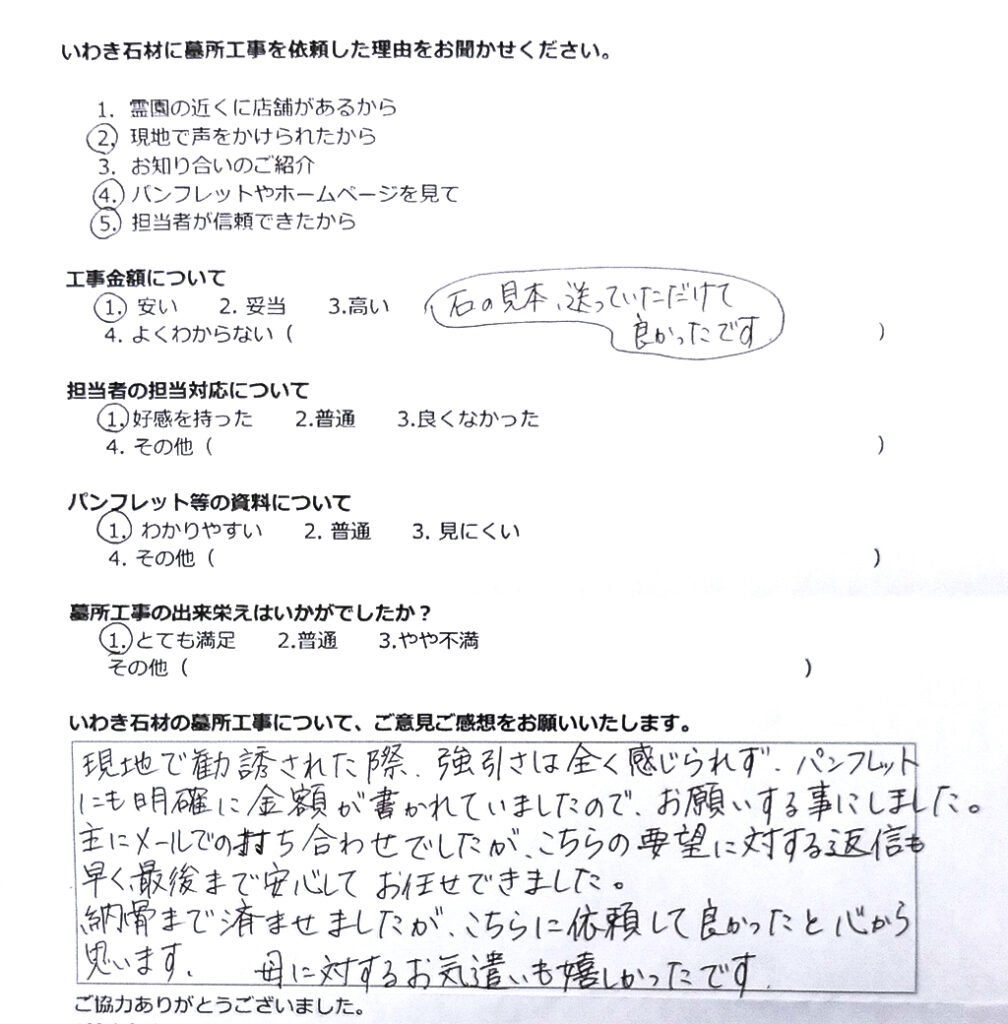 いわき石材に墓所工事を依頼した理由をお聞かせください。
1. 霊園の近くに店舗があるから
2. 現地で声をかけられたから
3. お知り合いのご紹介
4. パンフレットやホームページを見て
5. 担当者が信頼できたから
工事金額について
1. 安い 2. 妥当 3.高い
石の見本、送っていただけて
良かったです
4. よくわからない( )
担当者の担当対応について
1.好感を持った 2.普通 3.良くなかった
4. その他( )
パンフレット等の資料について
1. わかりやすい 2. 普通 3. 見にくい
4. その他( )
墓所工事の出来栄えはいかがでしたか?
1.とても満足 2.普通 3.やや不満
その他( )
いわき石材の墓所工事について、ご意見ご感想をお願いいたします。
現地で勧誘された際、強引さは全く感じられず、パンフレット
にも明確に金額が書かれていましたので、お願いする事にしました。
主にメールでの打ち合わせでしたが、こちらの要望に対する返信も
早く、最後まで安心してお任せできました。
納骨まで済ませましたが、こちらに依頼して良かったと心から
思います。 母に対するお気遣いも嬉しかったです.
ご協力ありがとうございました。